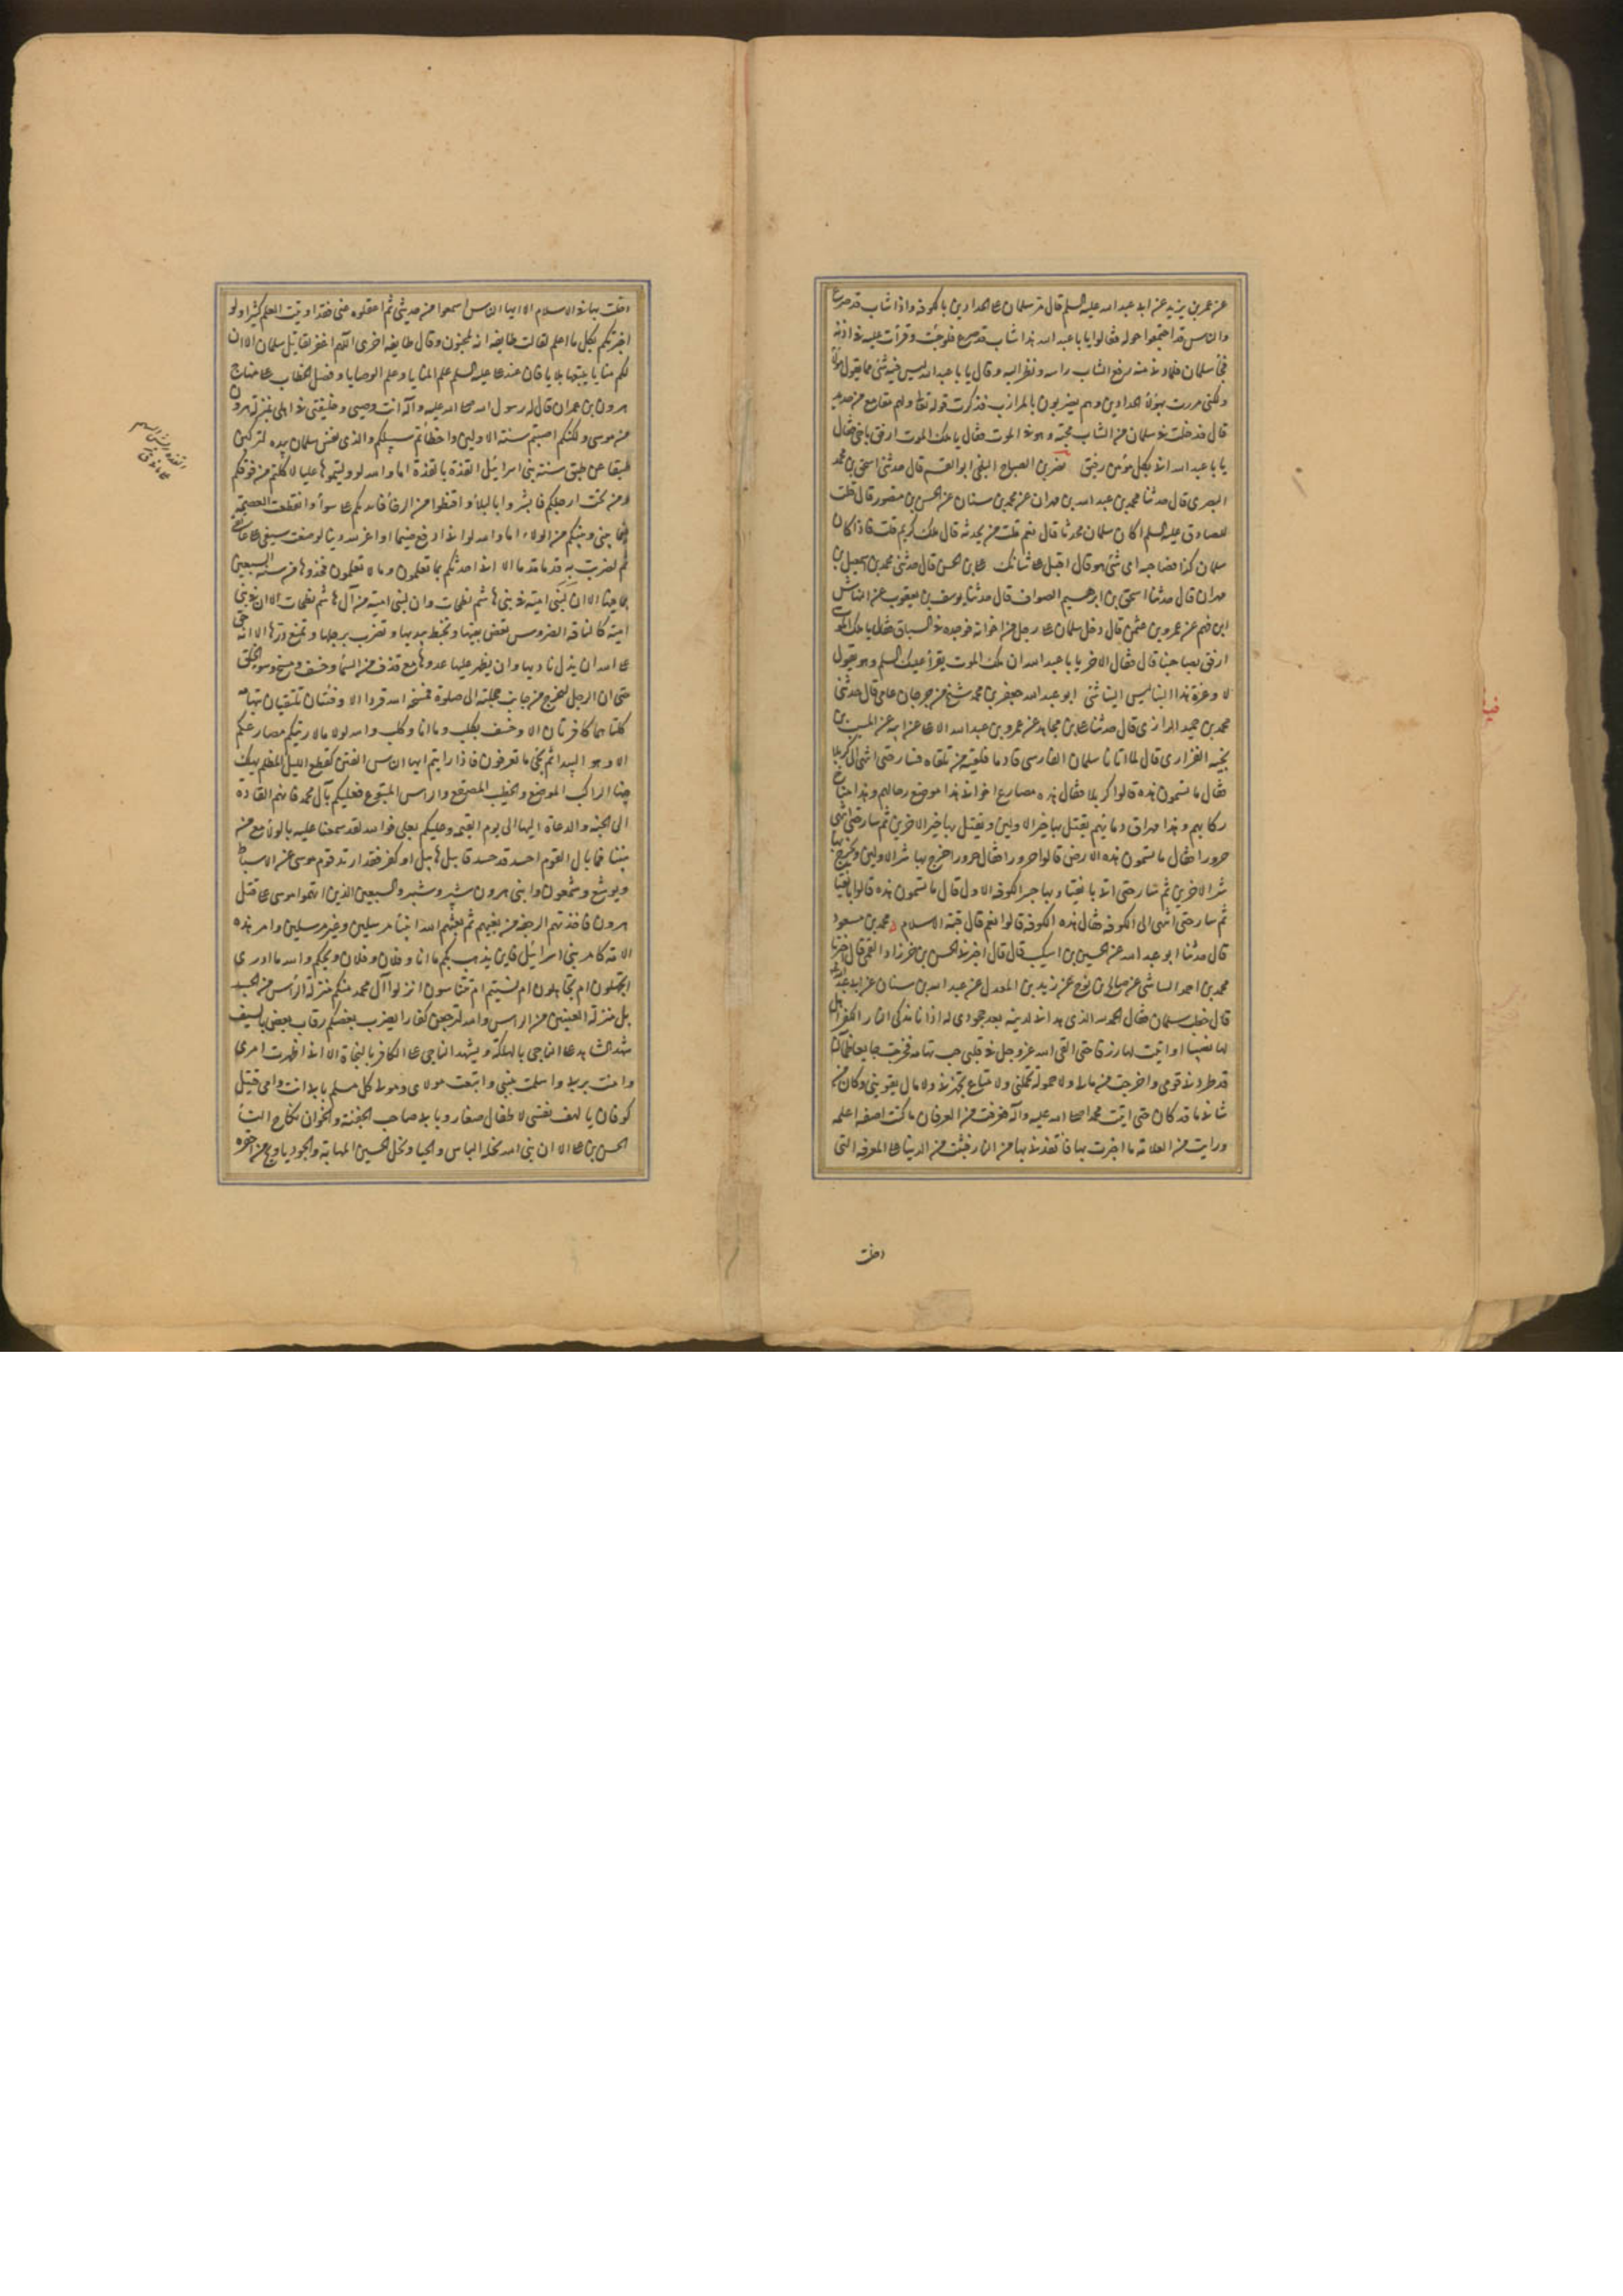 عن عمر بن يزيد عن ابى عبد الله عليه السلم قال مر سلمان على الحدادين بالكوفة واذا شاب قد صرع
والناس قد اجتمعوا حوله فقالوا يا با عبد الله هذا الشاب قد صرع فلو جئت وقرأت عليه فى اذنه
فجئ سلمان فلما دنا منه رفع الشاب راسه ونظر اليه وقال يا با عبد الله ليس فى شئ مما يقول هؤلاء
ولكنى مررت بهؤلاء الحدادين وهم يضربون بالمرازب فذكرت قوله تعالى ولهم مقامع من حديد
قال فدخلت فى سلمان من الشاب محبة وهو فى الموت فقال يا ملك الموت ارفق باخى فقال
يا با عبد الله انى بكل مؤمن رفيق نصر بن الصباح البلخى ابو القسم قال حدثنى اسحق بن محمد
البصرى قال حدثنا محمد بن عبد الله بن مهران عن محمد بن سنان عن الحسن بن منصور قال قلت
للصادق عليه السلم اكان سلمان محدثا قال نعم قلت من يحدثه قال ملك كريم قلت فاذا كان
سلمان كذا فصاحبه اى شئ هو قال اقبل على شانك على بن الحسن قال حدثنى محمد بن اسمعيل بن
مهران قال حدثنا اسحق بن ابرهيم الصواف قال حدثنا يوسف بن يعقوب عن النهاش
ابن فهم عن عمرو بن عثمن قال دخل سلمان على رجل من اخوانه فوجده فى السياق فقال يا ملك الموت
ارفق بصاحبنا قال فقال الاخر يا با عبد الله ان ملك الموت يقرأ عليك السلم وهو يقول
لا وعزة هذا البنا ليس الينا شئ ابو عبد الله جعفر بن محمد شيخ من جرجان عامى قال حدثنى
محمد بن حميد الرازى قال حدثنا على بن مجاهد عن عمرو بن عبد الله الاعلى عن ابيه عن المسيب بن
نجبة الفزارى قال لما اتانا سلمان الفارسى قادما فلقيته فيمن تلقاه فسار حتى انتهى الى كربلا
فقال ما تسمون هذه قالوا كربلا فقال هذه مصارع اخوانى هذا موضع رحالهم وهذا مناخ
ركابهم وهذا مهراق دمائهم يقتل بها خير الاولين ويقتل بها خير الاخرين ثم سار حتى انتهى
حرورا فقال ما تسمون هذه الارض قالوا حرورا فقال حرورا خرج بها شر الاولين ويخرج بها
شر الاخرين ثم سار حتى انتهى الى بانقيا وبها جسر الكوفة الاول قال ما تسمون هذه قالوا بانقيا
ثم سار حتى انتهى الى الكوفة فقال هذه الكوفة قالوا نعم قال قبة الاسلام محمد بن مسعود
قال حدثنا ابو عبد الله عن الحسين بن اشكيب قال قال اخبرنى الحسن بن خرزاد القمى قال اخبرنا
قال خطب سلمان فقال الحمد لله الذى هدانى لدينه بعد جحودى له اذ انا مذكى لنار الكفر اهل
لها نصيبا او اتيت لها رزقا حتى القى الله عز وجل فى قلبى حب تهامة فخرجت جايعا ظمآنا
قد طردنى قومى واخرجت من مالى ولا حمولة تحملنى ولا متاع يجهزنى ولا مال يقوينى وكان من
شانى ما قد كان حتى اتيت محمدا صلى الله عليه وآله فعرفت من العرفان ما كنت اعلمه
ورايت من العلامة ما اخبرت بها فانقذنى بها من النار فثبت من الدنيا على المعرفة التى
دخلت
دخلت بها فى الاسلام الا ايها الناس اسمعوا من حديثى ثم اعقلوه عنى فقد اوتيت العلم كثيرا ولو
اخبرتكم بكل ما اعلم لقالت طايفة انه لمجنون وقال طايفة اخرى اللهم اغفر لقاتل سلمان الا ان
لكم منايا يتبعها بلايا فان عند على عليه السلم علم المنايا وعلم الوصايا وفصل الخطاب على منهاج
هرون بن عمران قال له رسول الله صلى الله عليه وآله انت وصيى وخليفتى فى اهلى بمنزلة هرون
من موسى ولكنكم اصبتم سنة الاولين واخطأتم سبيلكم والذى نفس سلمان بيده لتركبن
طبقا عن طبق سنة بنى اسرائيل القذة بالقذة اما والله لو وليتموها عليا لاكلتم من فوقكم
ومن تحت ارجلكم فابشروا بالبلاء واقنطوا من الرخاء فنابذتكم على سواء وانقطعت العصمة
فيما بينى وبينكم من الولاء اما والله لو انى ادفع ضيما او اعز لله دينا لوضعت سيفى على عاتقى
ثم لضربت به قدما قدما الا انى احدثكم بما تعلمون وما لا تعلمون فخذوها من سنة السبعين
بما فيها الا ان لبنى امية فى بنى هاشم نطحات وان لبنى امية من آل هاشم نطحات الا ان بنى
امية كالناقة الضروس تعض بفيها وتخبط بيديها وتضرب برجليها وتمنع درها الا انه حق
على الله ان يذل ناديها وان يظهر عليها عدوها مع قذف من السماء وخسف ومسخ وسوء الخلق
حتى ان الرجل ليخرج من جانب حجلته الى صلوة فيمسخه الله قردا الا وفئتان تلتقيان بتهامة
كلتاهما كافرتان الا وخسف بكلب وما انا وكلب والله لولا ما لاريتكم مصارعكم
الا وهو البيداء ثم يجئ ما تعرفون فاذا رايتم ايها الناس الفتن كقطع الليل المظلم يهلك
فيها الراكب الموضع والخطيب المصقع والراس المتبوع فعليكم بآل محمد فانهم القادة
الى الجنة والدعاة اليها الى يوم القيمة وعليكم بعلى فوالله لقد سلمنا عليه بالولاء مع
نبينا فما بال القوم احسد قد حسد قابيل هابيل او كفر فقد ارتد قوم موسى عن الاسباط
ويوشع وشمعون وابنى هرون شبر وشبير والسبعين الذين اتهموا موسى على قتل
هرون فاخذتهم الرجفة من بغيهم ثم بعثهم الله انبياء مرسلين وغير مرسلين وامر هذه
الامة كامر بنى اسرائيل فاين يذهب بكم ما انا وفلان وفلان ويحكم والله ما ادرى
اتجهلون ام تتجاهلون ام نسيتم ام تتناسون انزلوا آل محمد منكم منزلة الراس من الجسد
بل منزلة العينين من الراس والله لترجعن كفارا يضرب بعضكم رقاب بعض بالسيف
يشهد الشاهد على الناجى بالهلكة ويشهد الناجى على الكافر بالنجاة الا انى اظهرت امرى
وامنت بربى واسلمت بنبيى واتبعت مولاى ومولى كل مسلم بابى انت وامى قتيل
كوفان يا لهف نفسى لاطفال صغار وبابى صاحب الجفنة والخوان نكاح النساء
الحسن بن على الا ان نبى الله نحله الباس والحيا ونحل الحسين المهابة والجود يا ويح